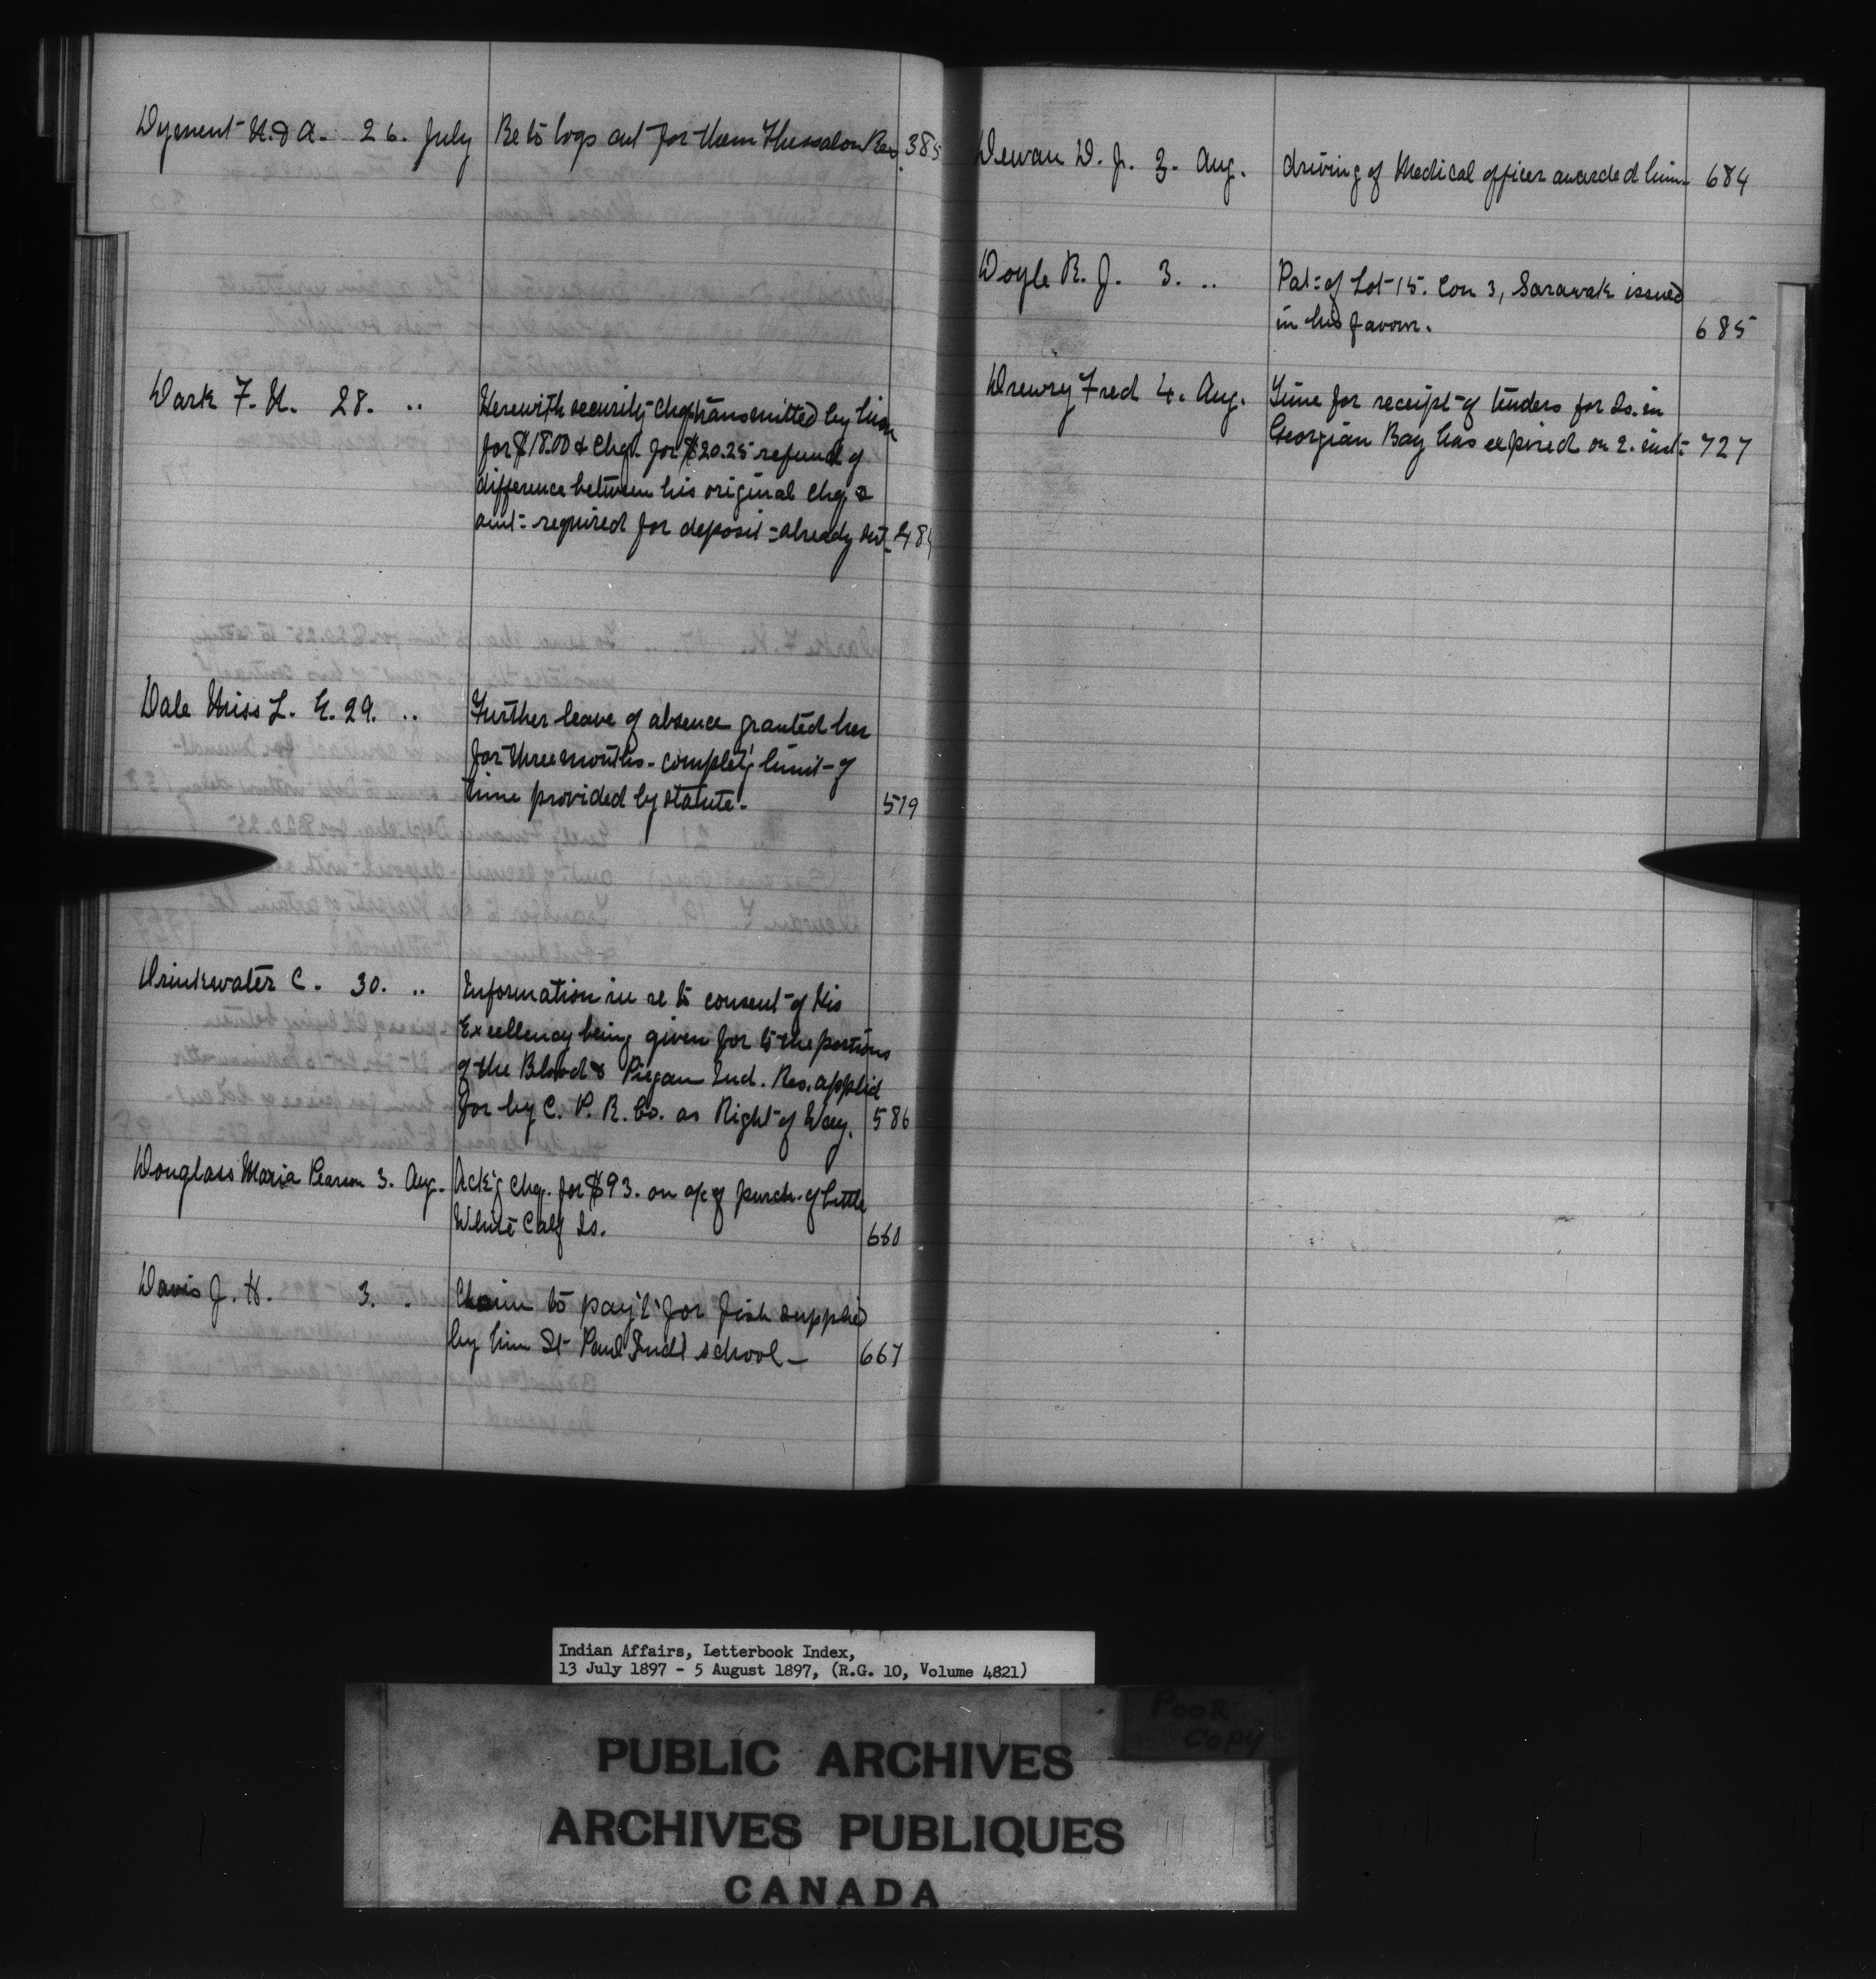 Dyment N. & A. 26. July Re to logs cut for them Thessalon Res. 385
Dark F. H. 28. .. Herewith security chq. transmitted by him
for $18.00 & chq. for $20.25 refund of
difference between his original chq. &
amt. required for deposit = already sent
Dale Miss L. E. 29. .. Further leave of absence granted her
for three months - complet'g limit of
time provided by statute. 519
Drinkwater C. 30. .. Information in re to consent of His
Excellency being given for to the portions
of the Blood & Piegan Ind. Res. applied
for by C. P. R. Co. as Right of Way. 586
Douglass Maria Pearson 3. Aug. Ack'g chq. for $93. on a/c of purch. of Little
White Calf Is. 660
Davis J. H. 3. . Claim to pay't for fish supplied
by him St Paul Indl school - 667
Dewan D. J. 3. Aug. driving of Medical officer awarded him - 684
Doyle R. J. 3. .. Pat: of Lot 15. Con 3, Sarawak issued
in his favour. 685
Drewry Fred 4. Aug. Time for receipt of tenders for Is. in
Georgian Bay has expired on 2. inst: 727
Indian Affairs, Letterbook Index,
13 July 1897 - 5 August 1897, (R.G. 10, Volume 4821)
POOR
COPY
PUBLIC ARCHIVES
ARCHIVES PUBLIQUES
CANADA